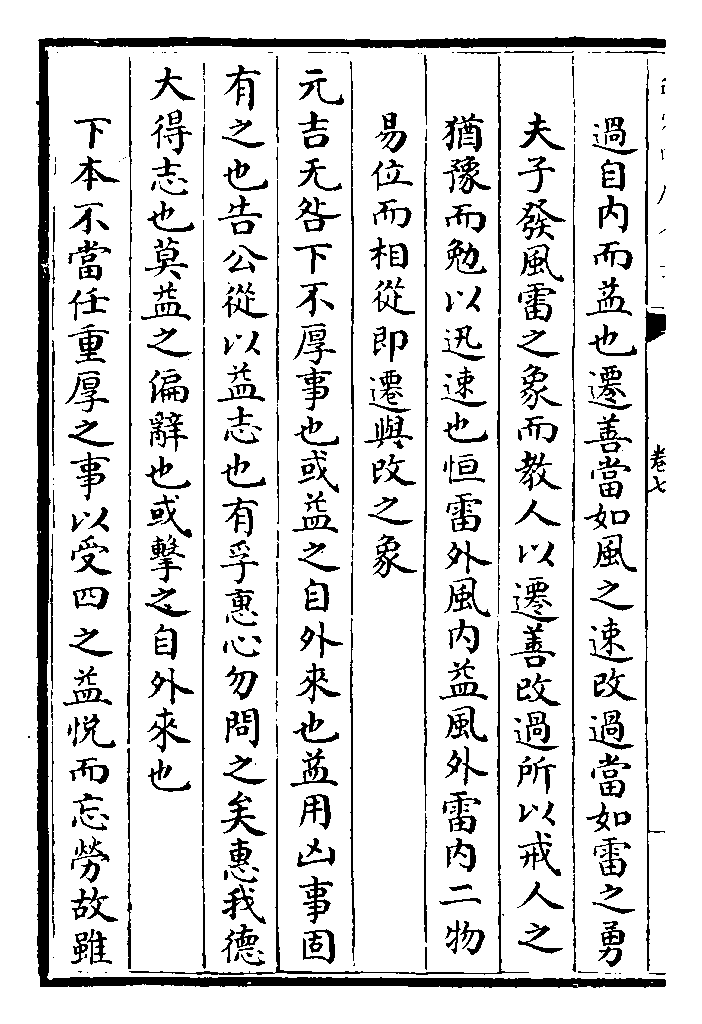 過自内而益也遷善當如風之速改過當如雷之勇
夫子發風雷之象而教人以遷善改過所以戒人之
猶豫而勉以迅速也恒雷外風内益風外雷内二物
易位而相從即遷與改之象
元吉无咎下不厚事也或益之自外來也益用凶事固
有之也告公從以益志也有孚惠心勿問之矣惠我德
大得志也莫益之偏辭也或擊之自外來也
下本不當任重厚之事以受四之益悦而忘勞故雖
卷七